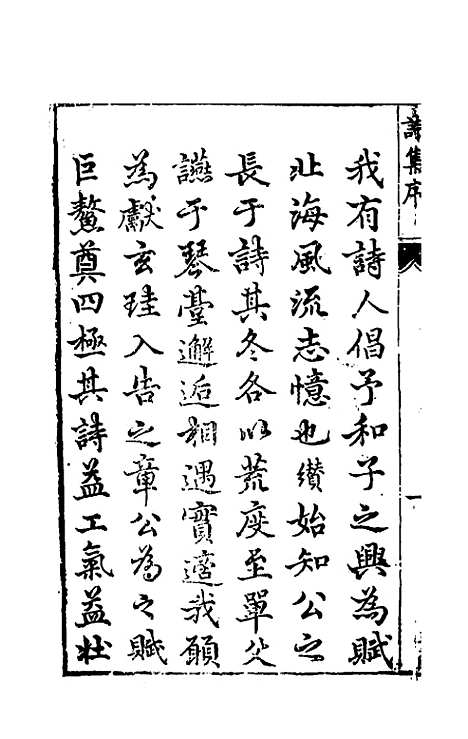 詩集序
我有詩人倡予和子之興為賦
北海風流志憶也纘始知公之
長于詩其冬各以荒度至單父
讌于琴臺邂逅相遇實適我願
為獻玄珪入告之章公為之賦
巨鰲奠四極其詩益工氣益壯
一